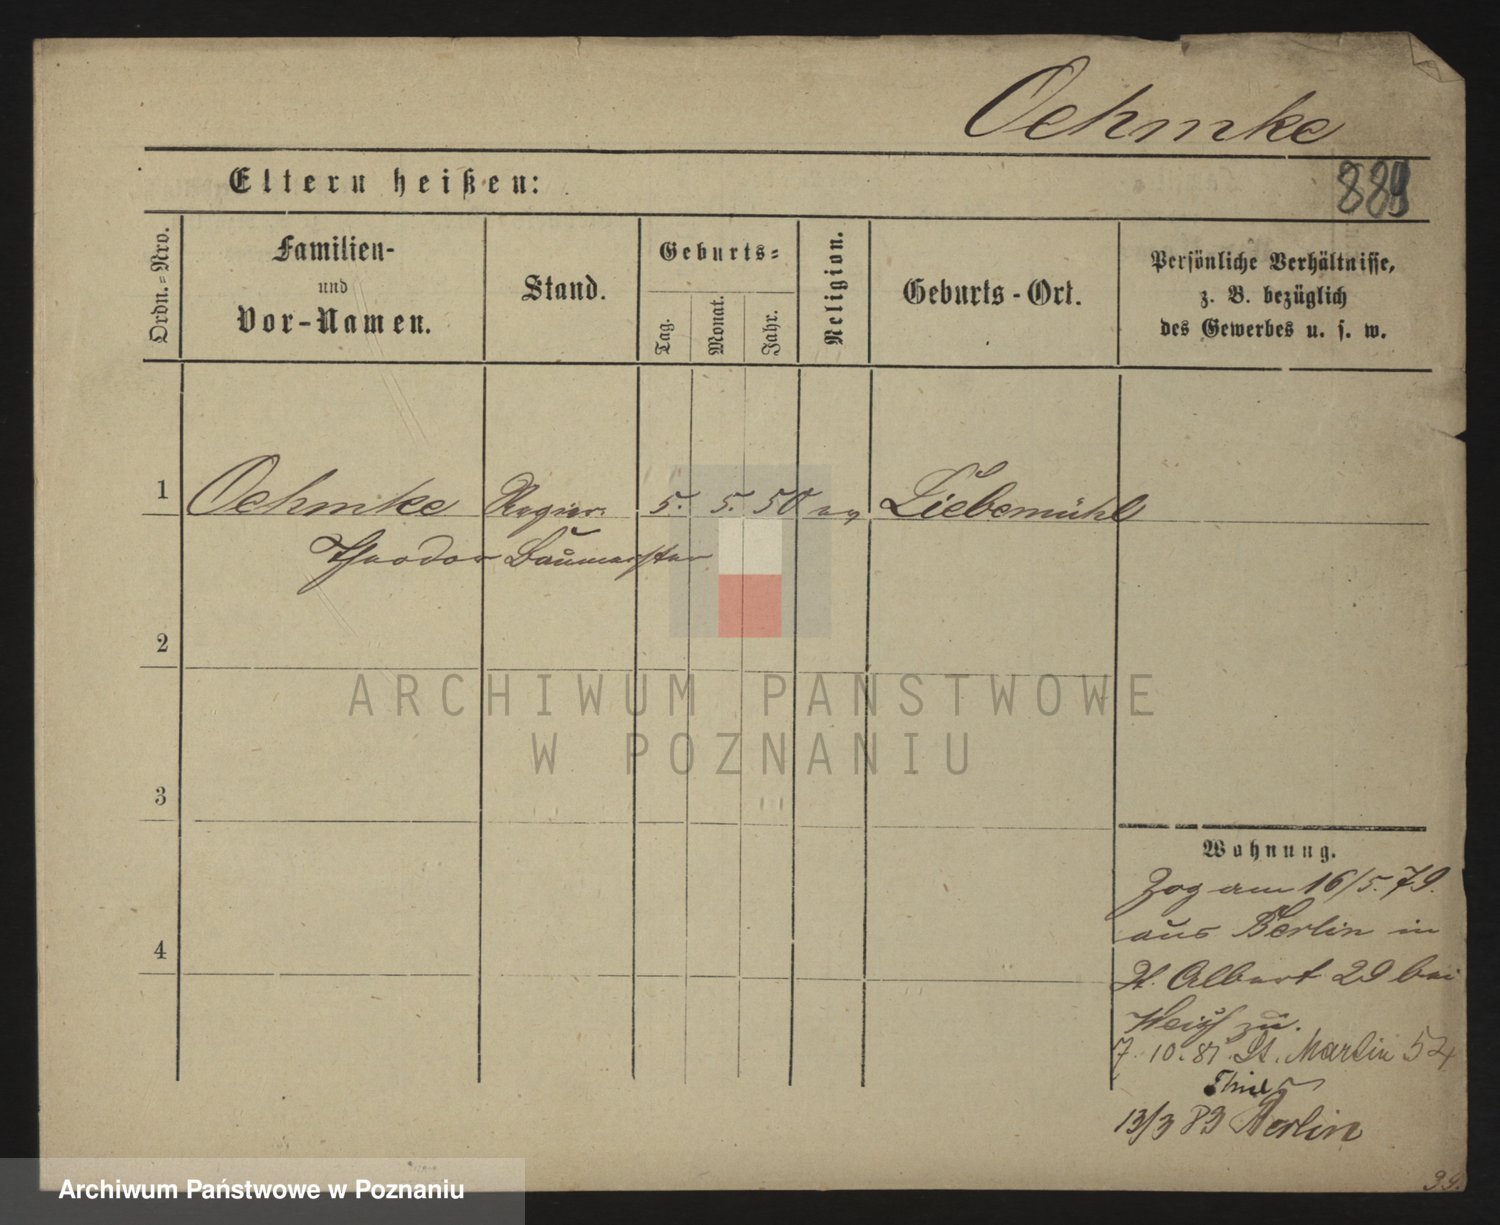 Oehmke
889
Eltern heißen:
Ordn.=Nro.
Familien-
und
Vor-Namen.
Stand.
Geburts=
Tag.
Monat.
Jahr.
Religion.
Geburts-Ort.
Persönliche Verhältnisse,
z. B. bezüglich
des Gewerbes u. s. w.
1 Oehmke Regier. 5. 5. 50 ev Liebemühl
Theodor Baumeister
2
ARCHIWUM PAŃSTWOWE
W POZNANIU
3
Wohnung.
Zog am 16/5.79.
aus Berlin in
St. Albert 29 bei
zu.
7. 10. 81. St. Martin 54
Thiel
13/3 83 Berlin
4
Archiwum Państwowe w Poznaniu